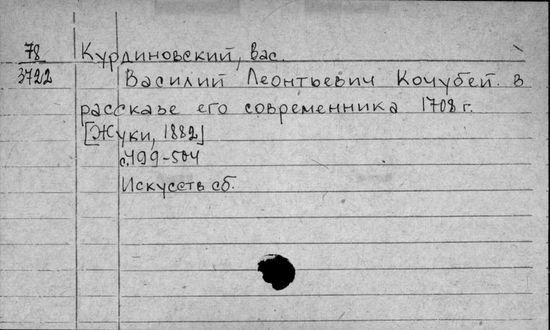 78 Курдиновский, Вас.
3722 Василий Леонтьевич Кочубей. в
рассказе его современника 1708 г.
[Жуки, 1882]
с. 499-504
Искусств сб.